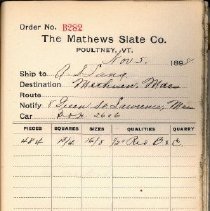 Order No. B282
The Mathews Slate Co.
POULTNEY, VT.
Nov 5, 189
Ship to A. S. Lang
Destination Methuen, Mass
Route
Notify Green St Lawrence, Mass
Car Box 2616
PIECES SQUARES SIZES QUALITIES QUARRY
484 16/8 Red